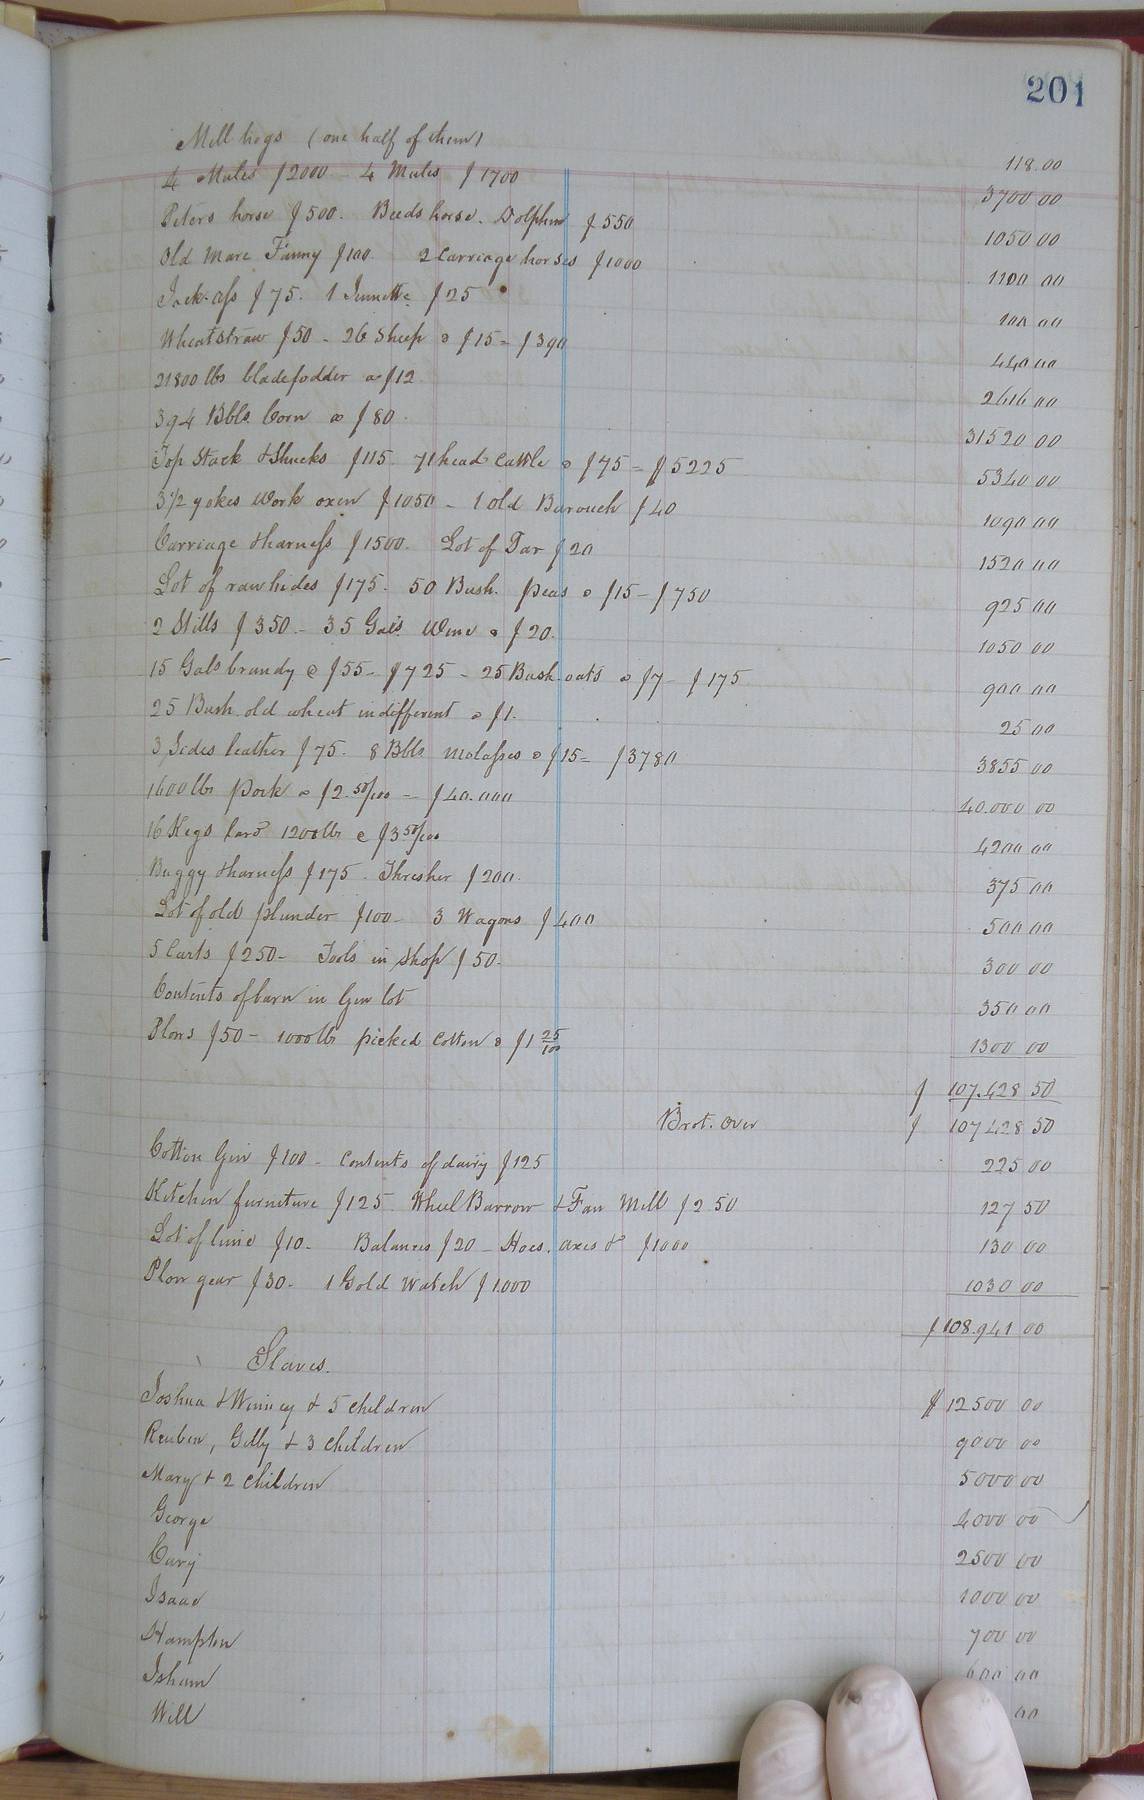 201
Mill hogs (one half of them) 118.00
4 Mules $2000 - 4 Mules $1700 3700 00
Peters horse $500. Beeds horse. Dolphin $550 1050 00
Old Mare Fanny $100. 2 Carriage horses $1000 1100 00
Jack-ass $75. 1 Jennette $25 100 00
Wheatstraw $50 - 26 Sheep @ $15 = $390 440 00
21800 lbs bladefodder @ $12 2616 00
394 Bbls. Corn @ $80. 31520 00
Top Stack & Shucks $115. 71 head Cattle @ $75 = $5225 5340 00
3 1/2 yokes Work oxen $1050 - 1 old Barouch $40 1090 00
Carriage & harness $1500. Lot of Tar $20 1520 00
Lot of rawhides $175. 50 Bush. peas @ $15 - $750 925 00
2 Stills $350 - 35 Gals Wine @ $20. 1050 00
15 Gals brandy @ $55 - $725 - 25 Bush. oats @ $7 - $175 900 00
25 Bush. old wheat indifferent @ $1. 25 00
3 Sides leather $75. 8 Bbls molasses @ $15 = $3780 3855 00
1600 lbs Pork @ $2.50/100 - $40.000 40.000 00
16 Kegs lard 1200 lbs @ $3 50/100 4200 00
Buggy & harness $175. Thresher $200. 375 00
Lot of old plunder $100 - 3 Wagons $400 500 00
5 Carts $250 - Tools in Shop $50. 300 00
Contents of barn in Gin lot 350 00
Plows $50 - 1000 lb picked Cotton @ $1 25/100 1300 00
$ 107.428 50
Brot. Over $ 107428 50
Cotton Gin $100 - Contents of dairy $125 225 00
Kitchen furniture $125. Wheel Barrow & Fan Mill $2 50 127 50
Lot of lime $10 - Balances $20 - Hoes, axes & $1000 130 00
Plow gear $30 - 1 Gold Watch $1.000 1030 00
$108.941 00
Slaves.
Joshua & Winney & 5 children $12500 00
Reuben, Gilly & 3 children 9000 00
Mary & 2 children 5000 00
George 4000 00
Cary 2500 00
Isaac 1000 00
Hampton 700 00
Isham 600 00
Will 00